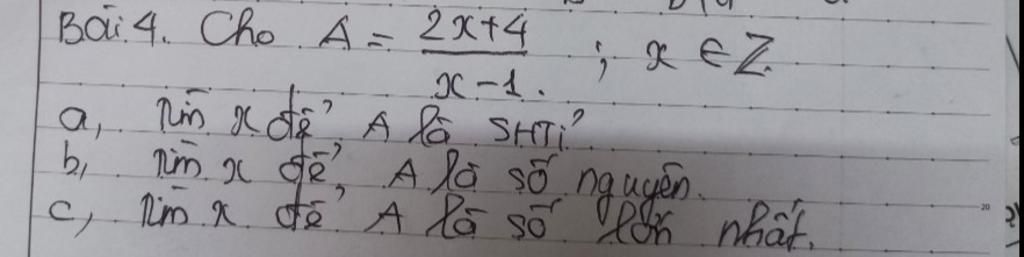 Bài 4. Cho A = \frac{2x+4}{x-1} ; x ∈ Z.
a, Tìm x để A là SHTỉ
b, Tìm x để A là số nguyên.
c, Tìm x để A là số lớn nhất.
20